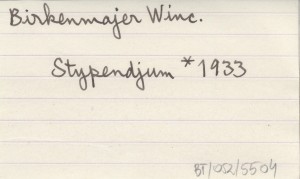 Birkenmajer Winc.
Stypendjum * 1933
BT/052/5504